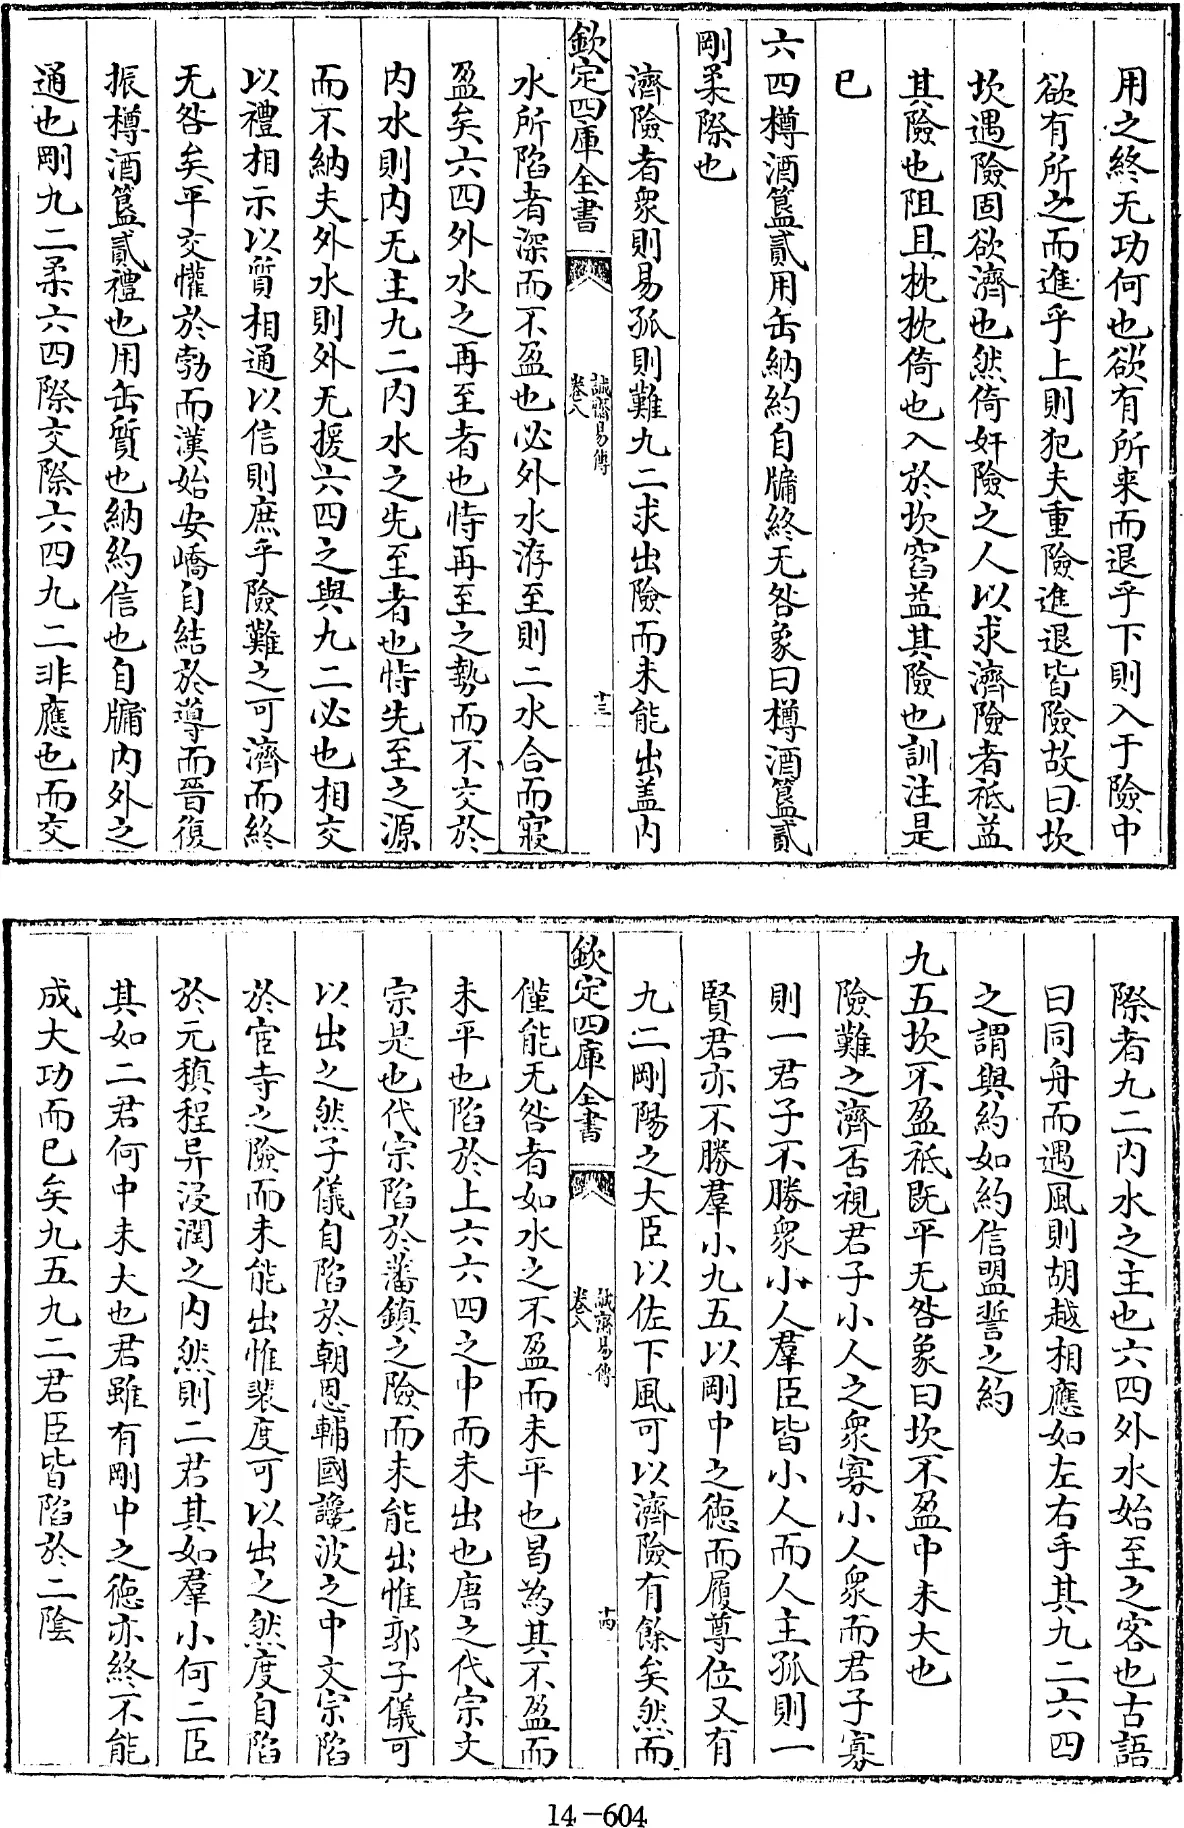 用之終无功何也欲有所来而退乎下則入于險中
欲有所之而進乎上則犯夫重險進退皆險故曰坎
坎遇險固欲濟也然倚奸險之人以求濟險者祗益
其險也阻且枕枕倚也入於坎窞益其險也訓注是
已
六四樽酒簋貳用缶納約自牖終无咎象曰樽酒簋貳
剛柔際也
濟險者衆則易孤則難九二求出險而未能出盖内
欽定四庫全書
誠齋易傳
卷八
十三
水所陷者深而不盈也必外水洊至則二水合而寖
盈矣六四外水之再至者也恃再至之勢而不交於
内水則内无主九二内水之先至者也恃先至之源
而不納夫外水則外无援六四之與九二必也相交
以禮相示以質相通以信則庶乎險難之可濟而終
无咎矣平交懽於勃而漢始安嶠自結於導而晉復
振樽酒簋貳禮也用缶質也納約信也自牖内外之
通也剛九二柔六四際交際六四九二非應也而交
際者九二内水之主也六四外水始至之客也古語
曰同舟而遇風則胡越相應如左右手其九二六四
之謂與約如約信盟誓之約
九五坎不盈祗既平无咎象曰坎不盈中未大也
險難之濟否視君子小人之衆寡小人衆而君子寡
則一君子不勝衆小人羣臣皆小人而人主孤則一
賢君亦不勝羣小九五以剛中之德而履尊位又有
九二剛陽之大臣以佐下風可以濟險有餘矣然而
欽定四庫全書
誠齋易傳
卷八
十四
僅能无咎者如水之不盈而未平也曷為其不盈而
未平也陷於上六六四之中而未出也唐之代宗文
宗是也代宗陷於藩鎮之險而未能出惟郭子儀可
以出之然子儀自陷於朝恩輔國讒波之中文宗陷
於宦寺之險而未能出惟裴度可以出之然度自陷
於元稹程异浸潤之内然則二君其如羣小何二臣
其如二君何中未大也君雖有剛中之德亦終不能
成大功而已矣九五九二君臣皆陷於二陰
14-604